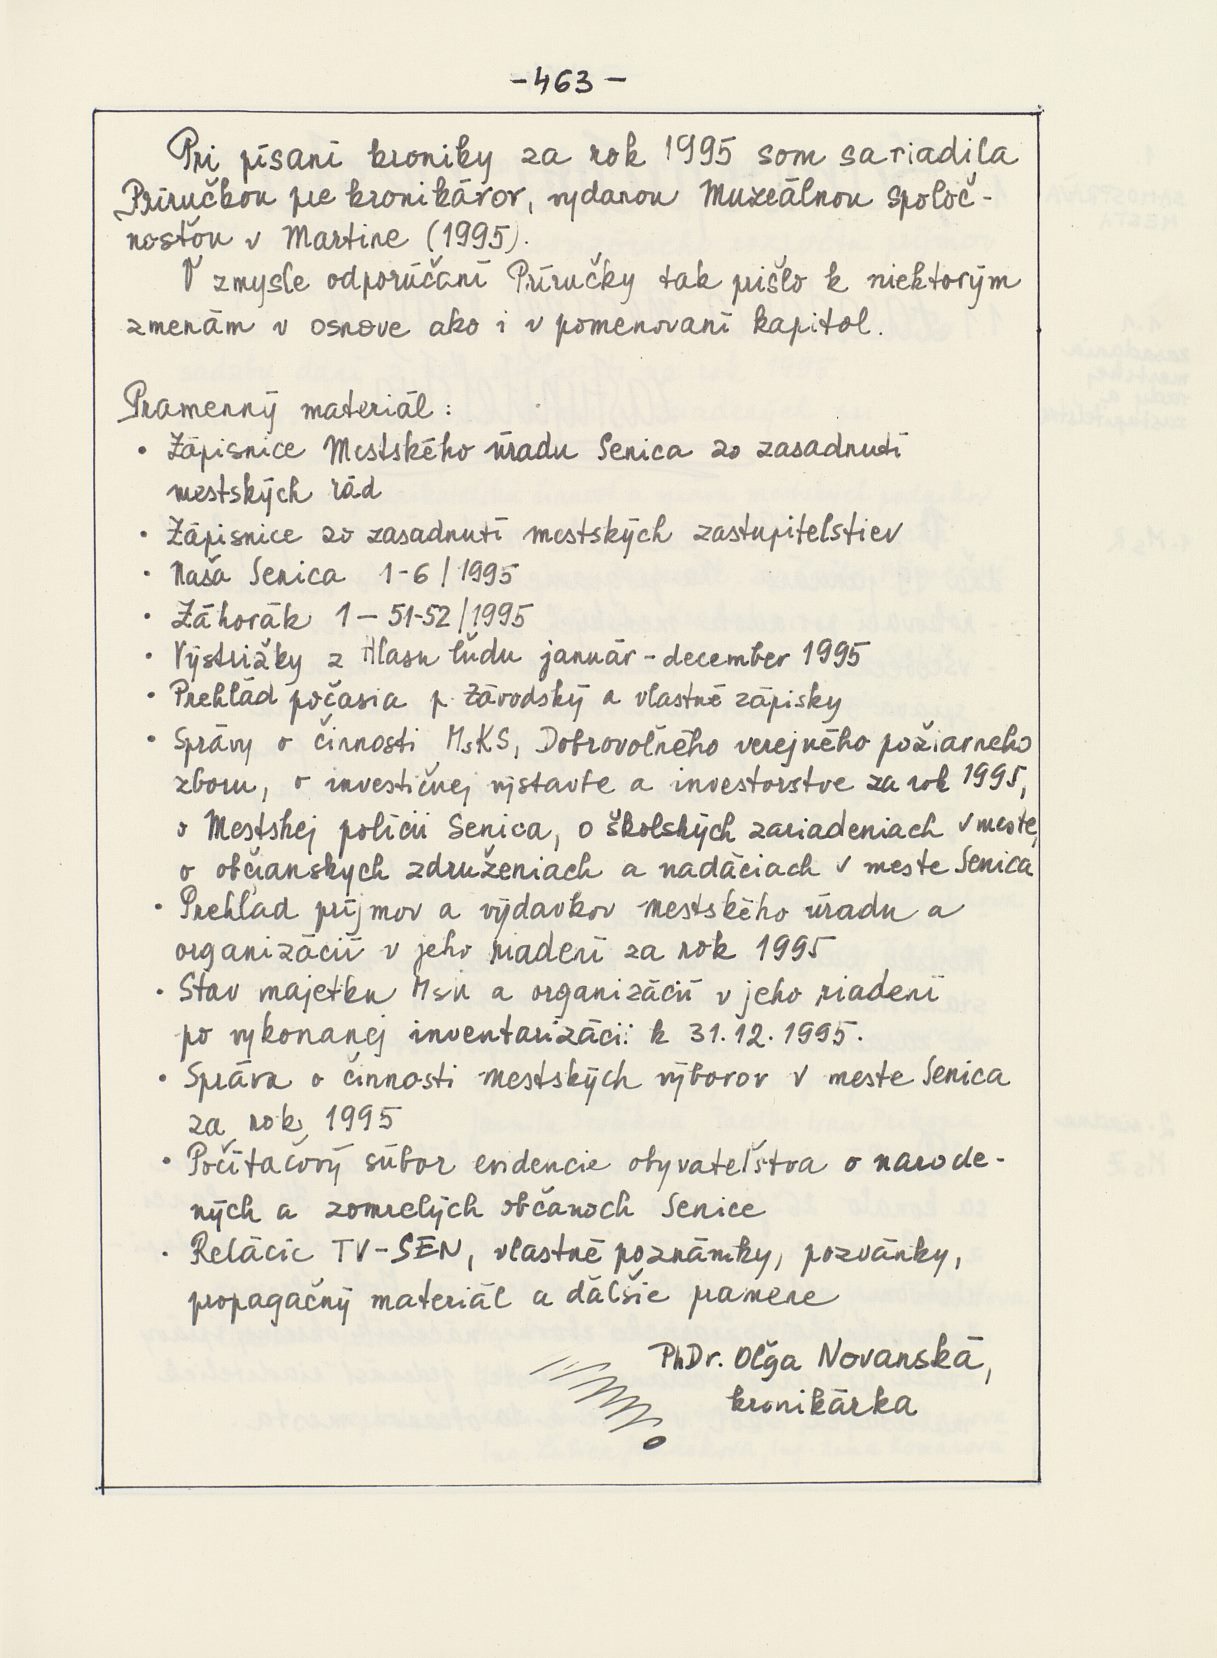 - 463 -
Pri písaní kroniky za rok 1995 som sa riadila
Príručkou pre kronikárov, vydanou Muzeálnou spoloč-
nosťou v Martine (1995).
V zmysle odporúčaní Príručky tak prišlo k niektorým
zmenám v osnove ako i v pomenovaní kapitol.
Pramenný materiál :
• Zápisnice Mestského úradu Senica zo zasadnutí
mestských rád
• Zápisnice zo zasadnutí mestských zastupiteľstiev
• Naša Senica 1-6/1995
• Záhorák 1 – 51-52/1995
• Výstrižky z Hlasu ľudu január - december 1995
• Prehľad počasia p. Závodský a vlastné zápisky
• Správy o činnosti MsKS, Dobrovoľného verejného požiarneho
zboru, o investičnej výstavbe a investorstve za rok 1995,
o Mestskej polícii Senica, o školských zariadeniach v meste,
o občianskych združeniach a nadáciach v meste Senica
• Prehľad príjmov a výdavkov mestského úradu a
organizácií v jeho riadení za rok 1995
• Stav majetku MsÚ a organizácií v jeho riadení
po vykonanej inventarizácii k 31.12.1995.
• Správa o činnosti mestských výborov v meste Senica
za rok 1995
• Počítačový súbor evidencie obyvateľstva o narode-
ných a zomrelých občanoch Senice
• Relácie TV-SEN, vlastné poznámky, pozvánky,
propagačný materiál a ďalšie pramene
PhDr. Oľga Novanská,
kronikárka